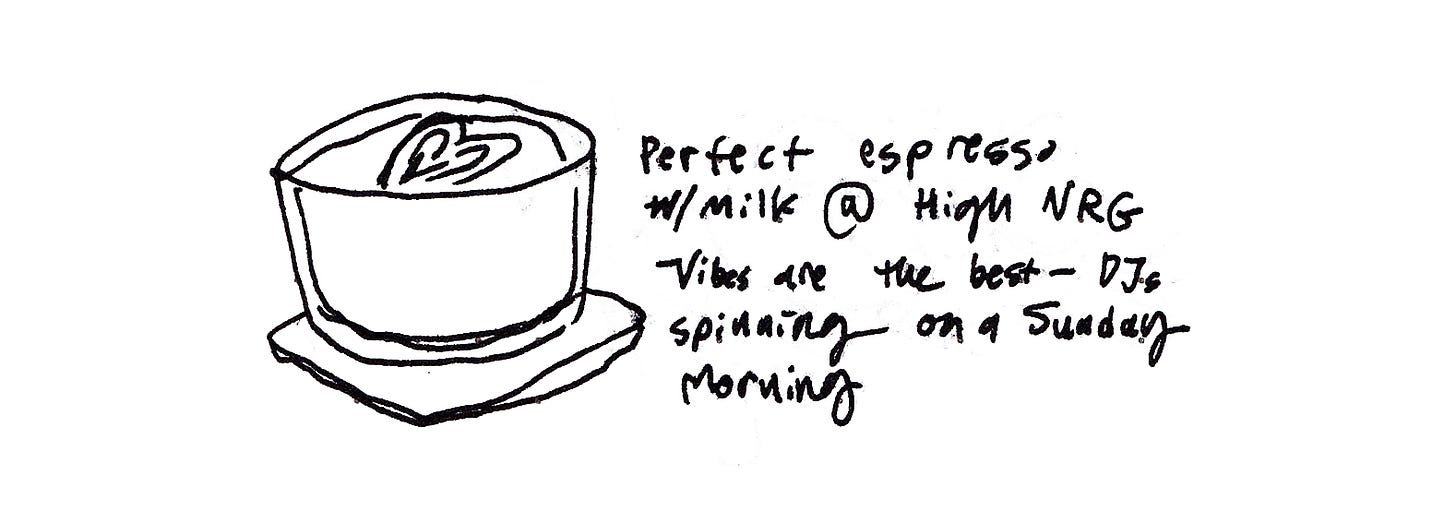 Perfect espresso
w/milk @ High NRG
Vibes are the best - DJs
spinning on a Sunday
Morning